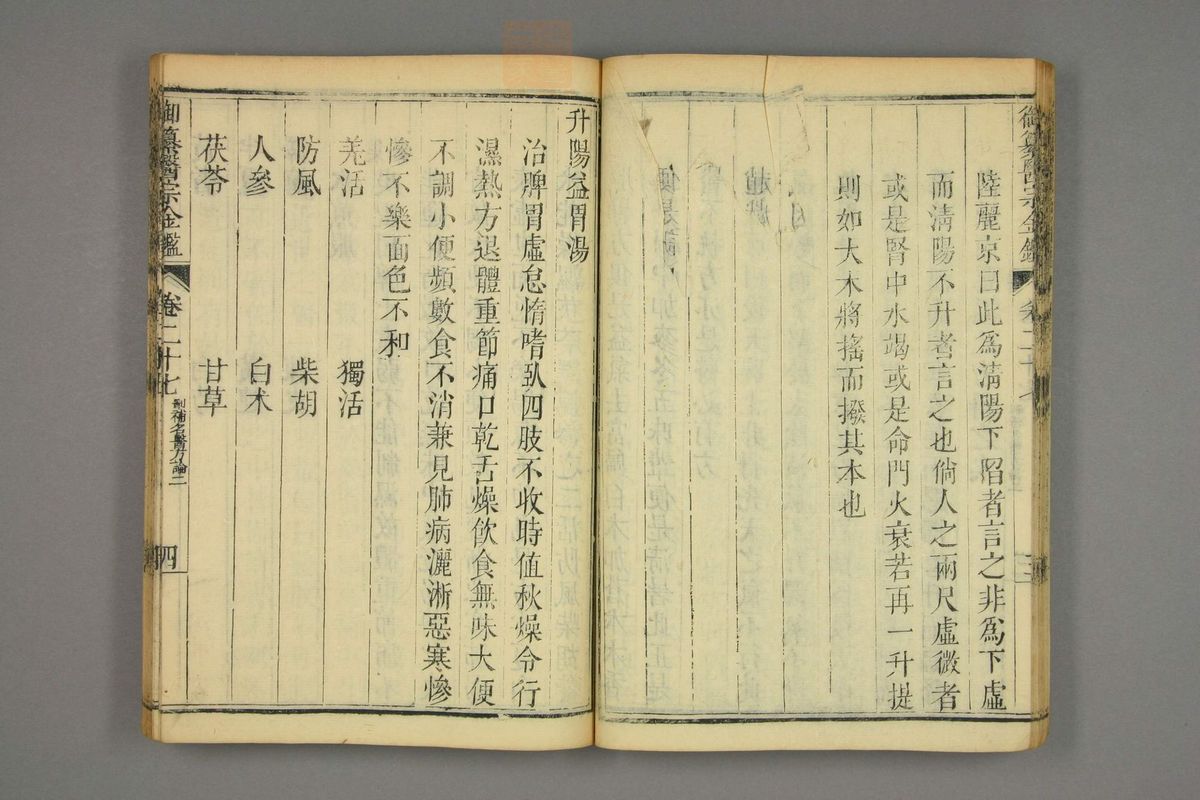 御纂醫宗金鑑
卷二十七
三
陸麗京曰此為淸陽下陷者言之非為下虛
而淸陽不升者言之也倘人之兩尺虛微者
或是腎中水竭或是命門火衰若再一升提
則如大木將搖而撥其本也
升陽益胃湯
治脾胃虛怠惰嗜臥四肢不收時值秋燥令行
濕熱方退體重節痛口乾舌燥飲食無味大便
不調小便頻數食不消兼見肺病灑淅惡寒慘
慘不樂面色不和
羌活 獨活
防風 柴胡
人參 白术
茯苓 甘草
御纂醫宗金鑑
卷二十七
刪補名醫方論二
四